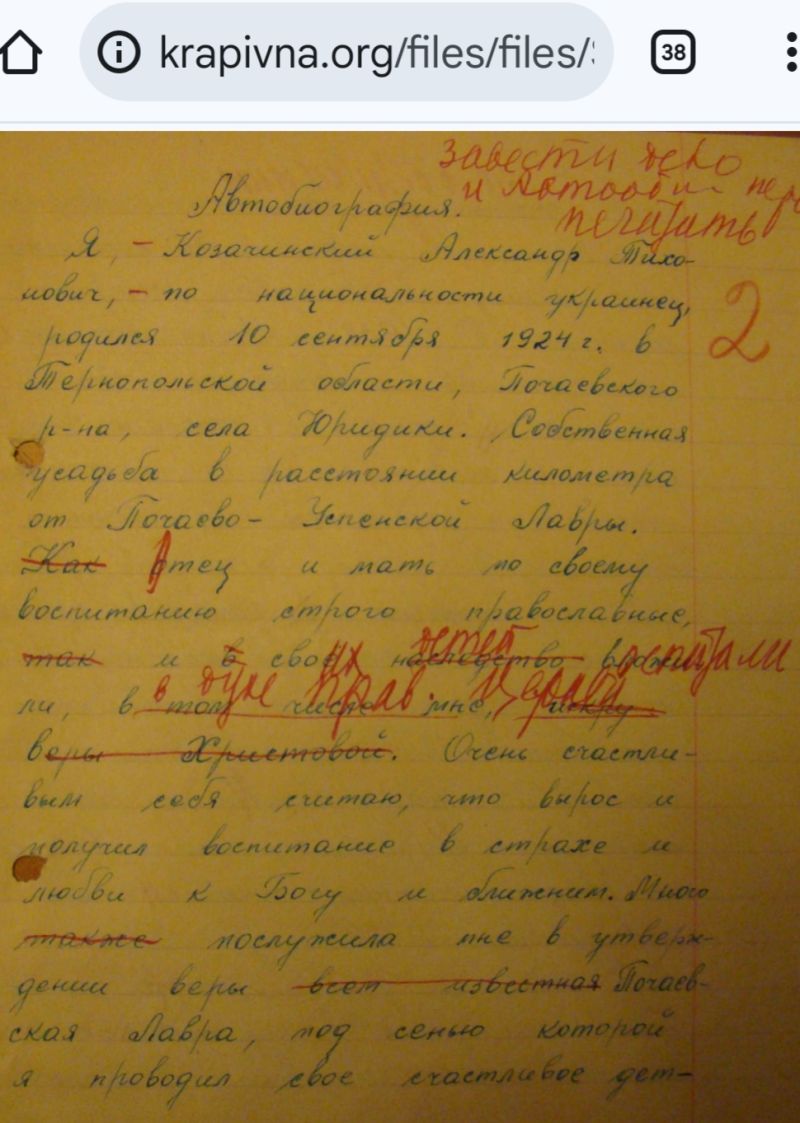 krapivna.org/files/files/
38
завести дело
и автобиог пере
печатать
Автобиография.
2
Я, – Козачинский Александр Тихо-
нович, – по национальности украинец,
родился 10 сентября 1924 г. в
Тернопольской области, Почаевского
р-на, села Юридики. Собственная
усадьба в расстоянии километра
от Почаево – Успенской Лавры.
Как Отец и мать по своему
воспитанию строго православные,
детей воспитали
так и в свое их наследство вложи
в духе прав. церкви
ли, в том числе мне, искру
веры Христовой. Очень счастли-
вым себя считаю, что вырос и
получил воспитание в страхе и
любви к Богу и ближним. Много
также послужила мне в утверж-
дении веры всем известная Почаев-
ская Лавра, под сенью которой
я проводил свое счастливое дет-